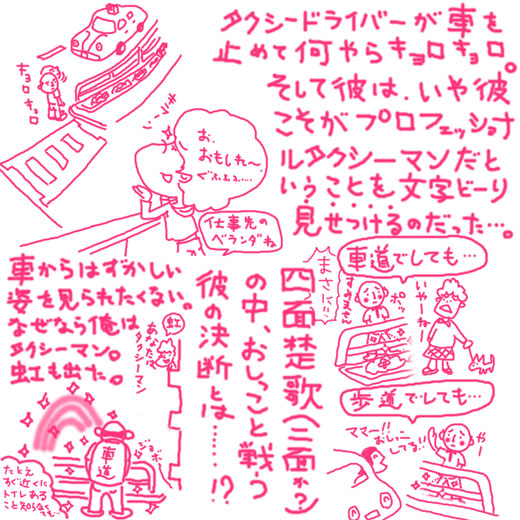 タクシードライバーが車を
止めて何やらキョロキョロ。
そして彼は、いや彼
こそがプロフェッショナ
ルタクシーマンだと
いうことを文字どーり
見せつけるのだった…。
キョロ
キョロ
お、
おもしれ〜
ぐふふふ…
仕事先の
ベランダね
四面楚歌(三面か?)
の中、おしっこと戦う
彼の決断とは……!?
まさに…
車道でしても…
ポッ
いやーねー
歩道でしても…
ママー!!
おしっこ
してる!!
やー
車からはずかしい
姿を見られたくない。
なぜなら俺は
タクシーマン。
虹も出た。
虹
あなたは
タクシーマン
車道
ジョボ
たとえ
すぐ近くに
トイレある
こと知らなくても…